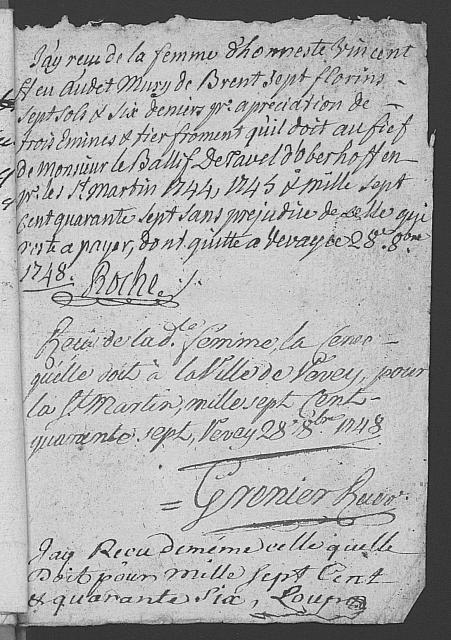 Jay reçu de la femme d'honneste Vincent
ffeu Audet Mury de Brent sept florins
sept sols & six deniers pr. apréciation de
trois émines & tier froment qu'il doit au fief
de Monsieur le Ballif De Tavel d'Oberhoffen
pr. les St Martin 1744, 1745 & mille sept
Cent quarante sept sans prejudice de celle qui
reste a payer, dont quitte a Vevay ce 28e. 8bre
1748. Roche
Reçu de la de. femme, la Cense
qu'elle doit à la Ville de Vevey, pour
la St Martin, mille sept Cent
quarante sept, Vevey 28e 8bre 1748
= Grenier Recvr.
Jay Recu de même celle quelle
Doit pour mille sept Cent
& quarante Six,